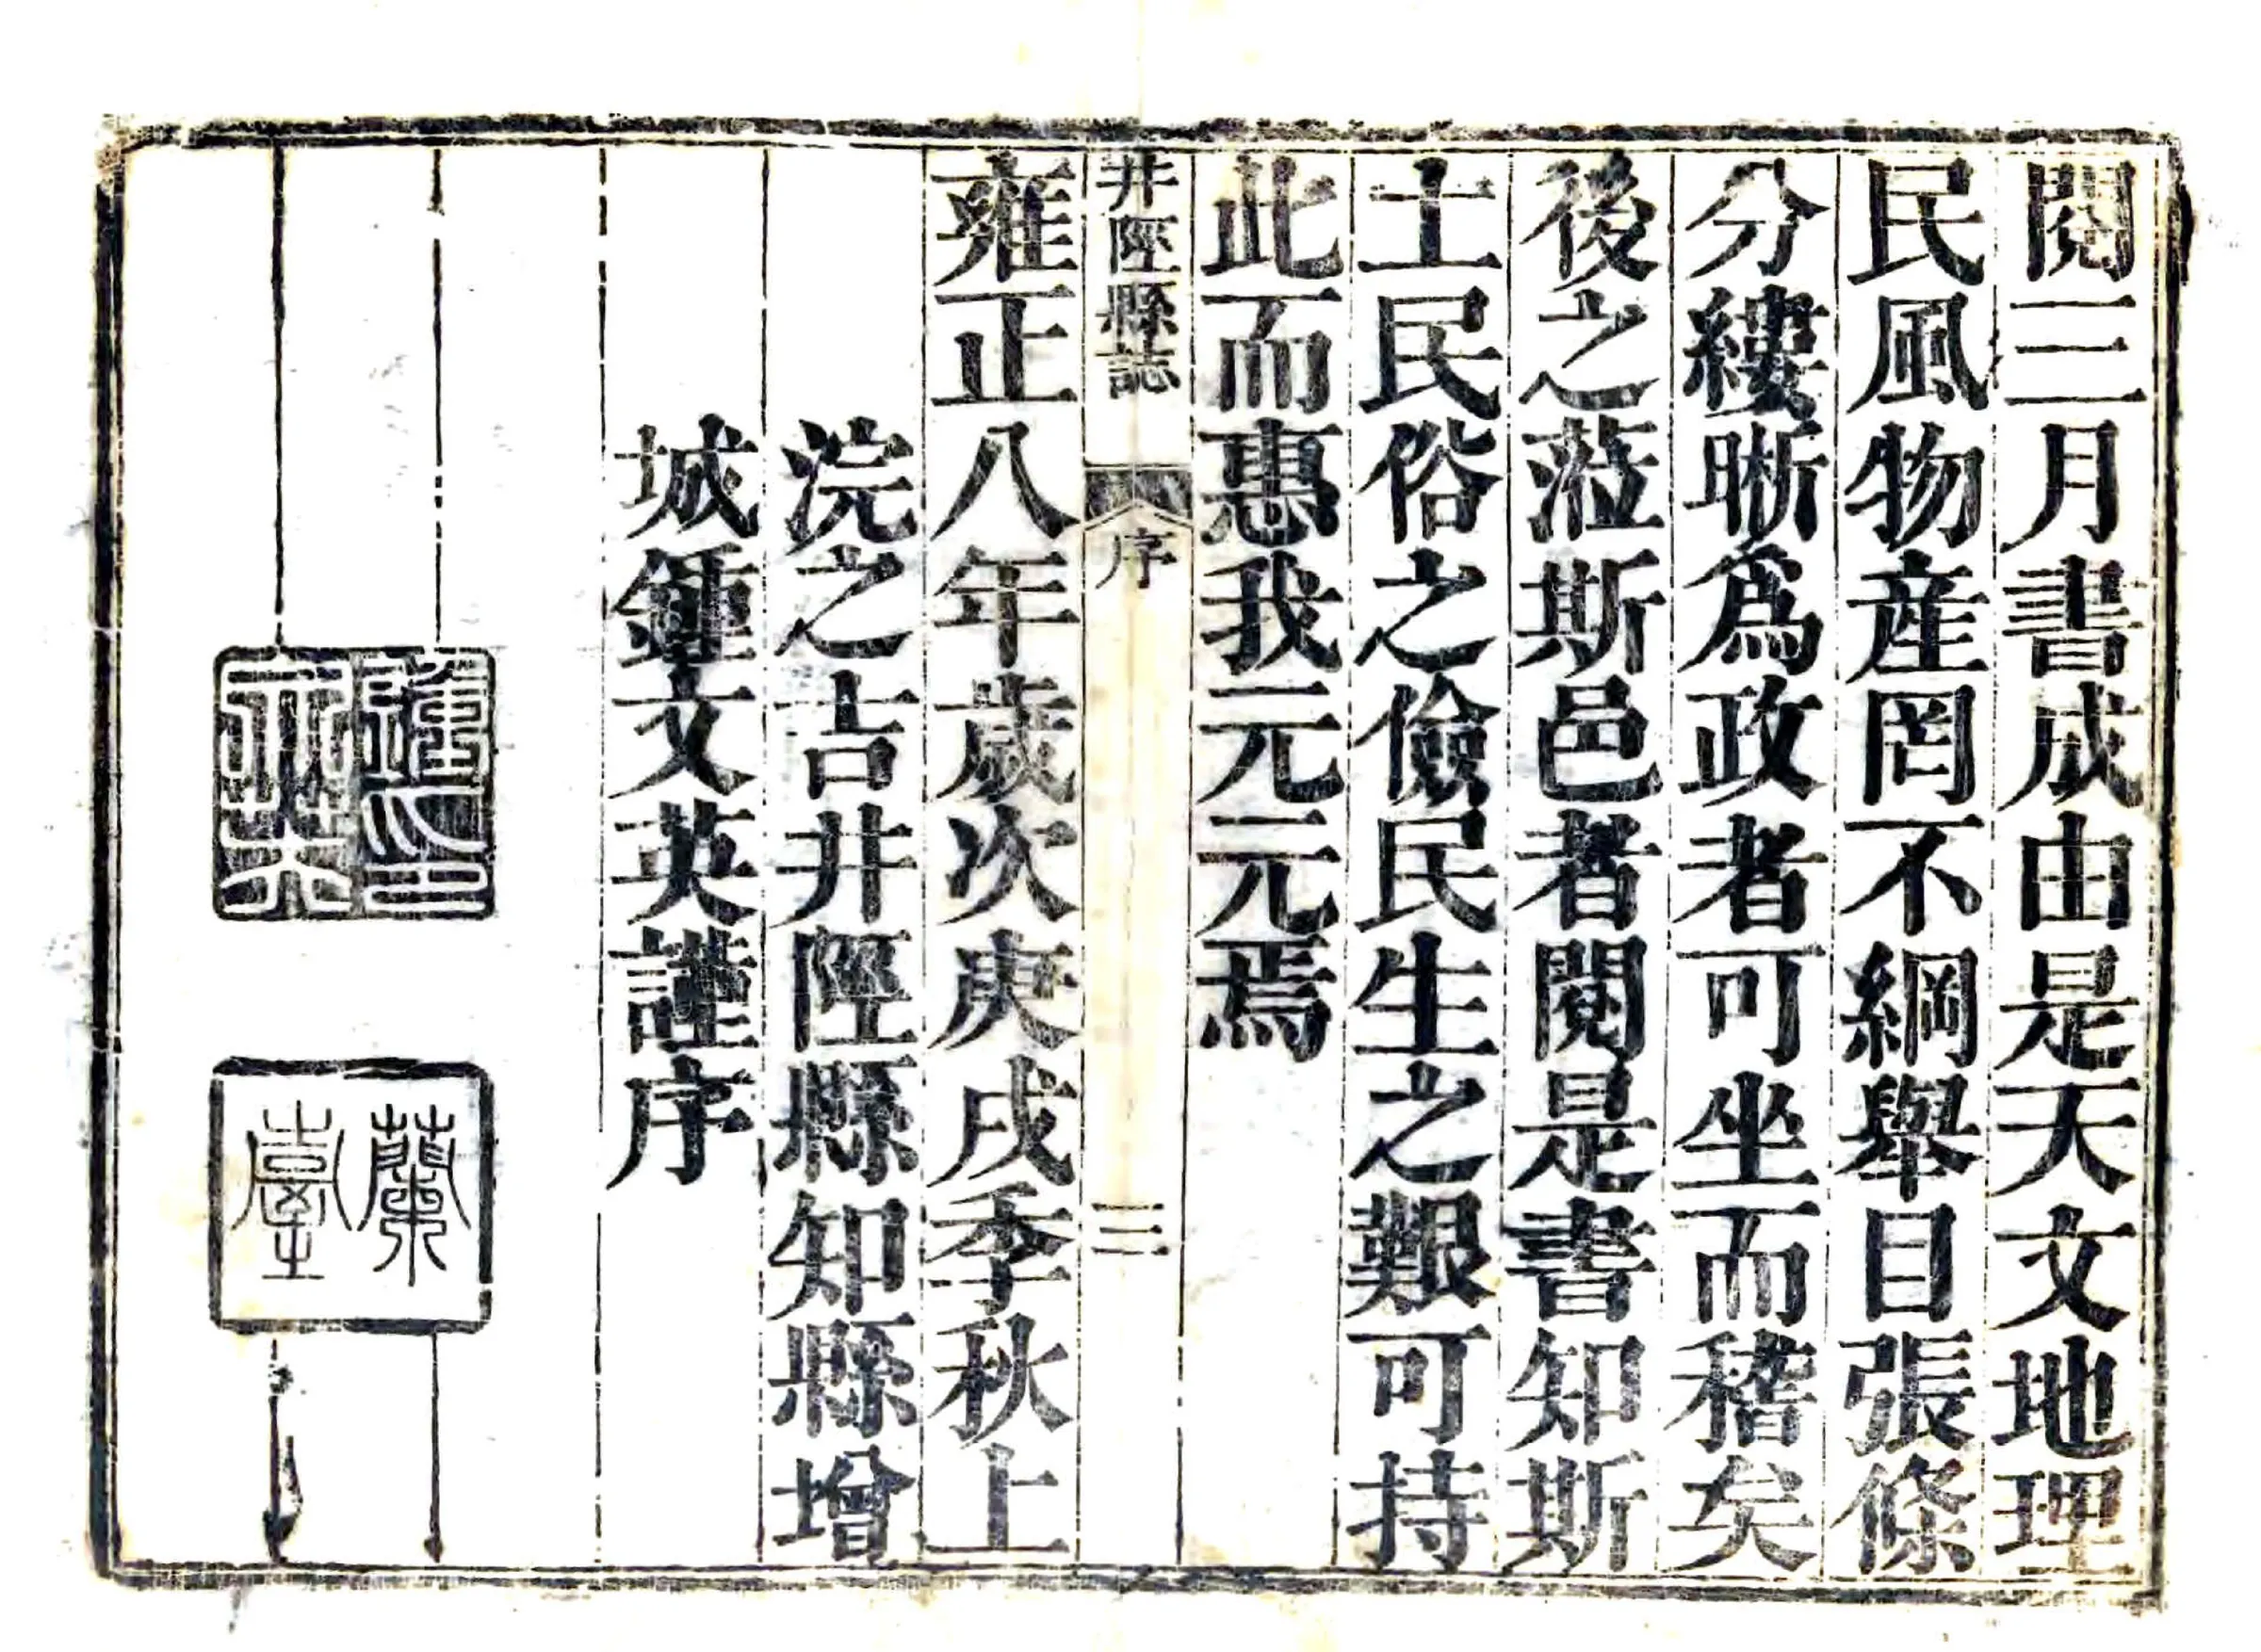 閱三月書成由是天文地理
民風物産罔不綱舉目張條
分縷晰爲政者可坐而稽矣
後之蒞斯邑者閱是書知斯
土民俗之儉民生之艱可持
此而惠我元元焉
井陘縣誌
序
三
雍正八年歲次庚戌季秋上
浣之吉井陘縣知縣增
城鍾文英謹序
鍾印
文英
蘭
臺